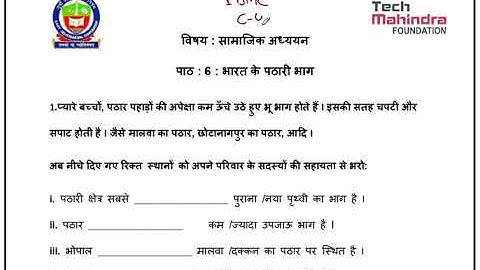 Tech
Mahindra
FOUNDATION
विषय : सामाजिक अध्ययन
पाठ : 6 : भारत के पठारी भाग
1.प्यारे बच्चों, पठार पहाड़ों की अपेक्षा कम ऊँचे उठे हुए भू भाग होते हैं । इसकी सतह चपटी और
सपाट होती है । जैसे मालवा का पठार, छोटानागपुर का पठार, आदि ।
अब नीचे दिए गए रिक्त स्थानों को अपने परिवार के सदस्यों की सहायता से भरो:
i. पठारी क्षेत्र सबसे ________________ पुराना /नया पृथ्वी का भाग है ।
ii. पठार ________________ कम /ज्यादा उपजाऊ भाग है ।
iii. भोपाल ________________ मालवा /दक्कन का पठार पर स्थित है ।